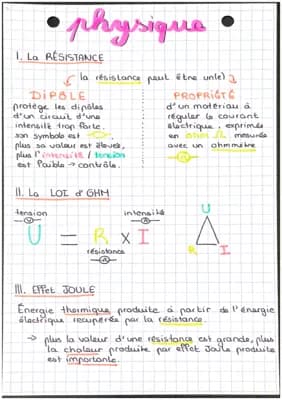 physique
I. La RÉSISTANCE
la résistance peut être un(e)
DIPÔLE
protège les dipôles
d'un circuit d'une
intensité trop forte.
son symbole est
plus sa valeur est élevée,
plus l'intensité / tension
est faible → contrôle.
PROPRIÉTÉ
d'un matériau à
réguler le courant
électrique. exprimée
en ohm Ω. mesurée
avec un ohmmètre
Ω
II. La LOI d'OHM
tension
V
intensité
A
U = R x I
résistance
Ω
U
R I
III. Effet JOULE
Énergie thermique produite à partir de l'énergie
électrique récupérée par la résistance.
→ plus la valeur d'une résistance est grande, plus
la chaleur produite par effet Joule produite
est importante.